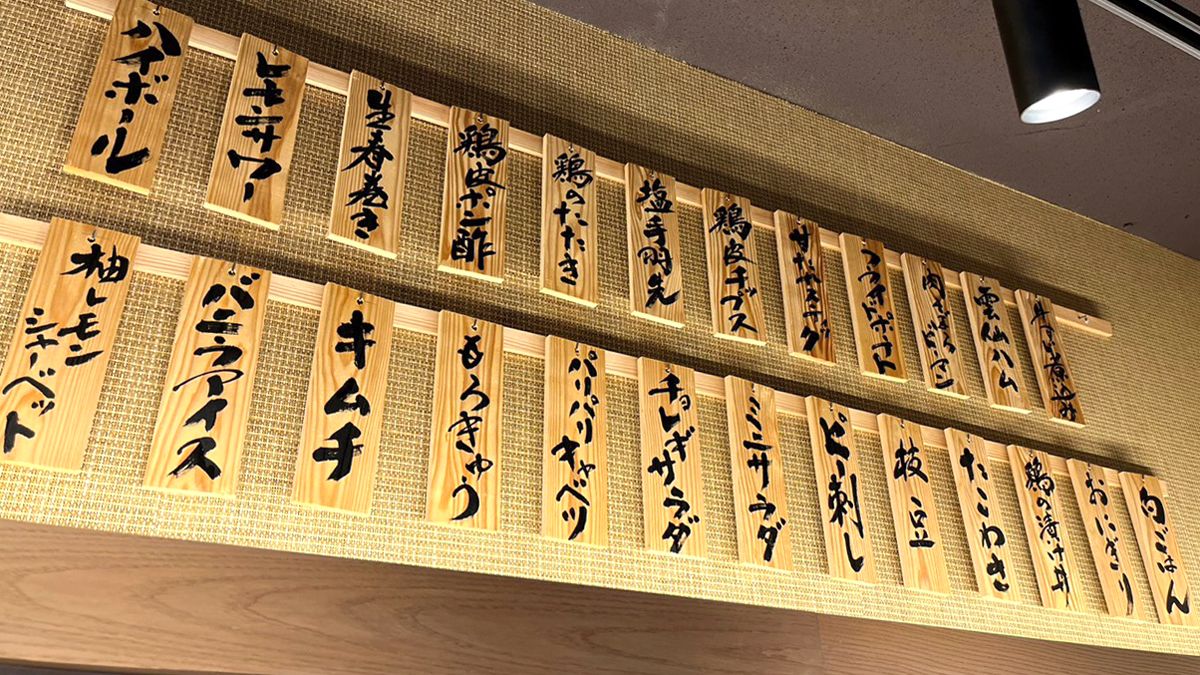 ハイボール
レモンサワー
生春巻き
鶏皮ポン酢
鶏のたたき
塩手羽先
鶏皮チップス
フライドポテト
雲仙ハム
柚レモン
シャーベット
バニラアイス
キムチ
もろきゅう
パリパリ
キャベツ
チョレギ
サラダ
ミニサラダ
ピー刺し
枝豆
たこわさ
鶏の漬け丼
おにぎり
白ごはん